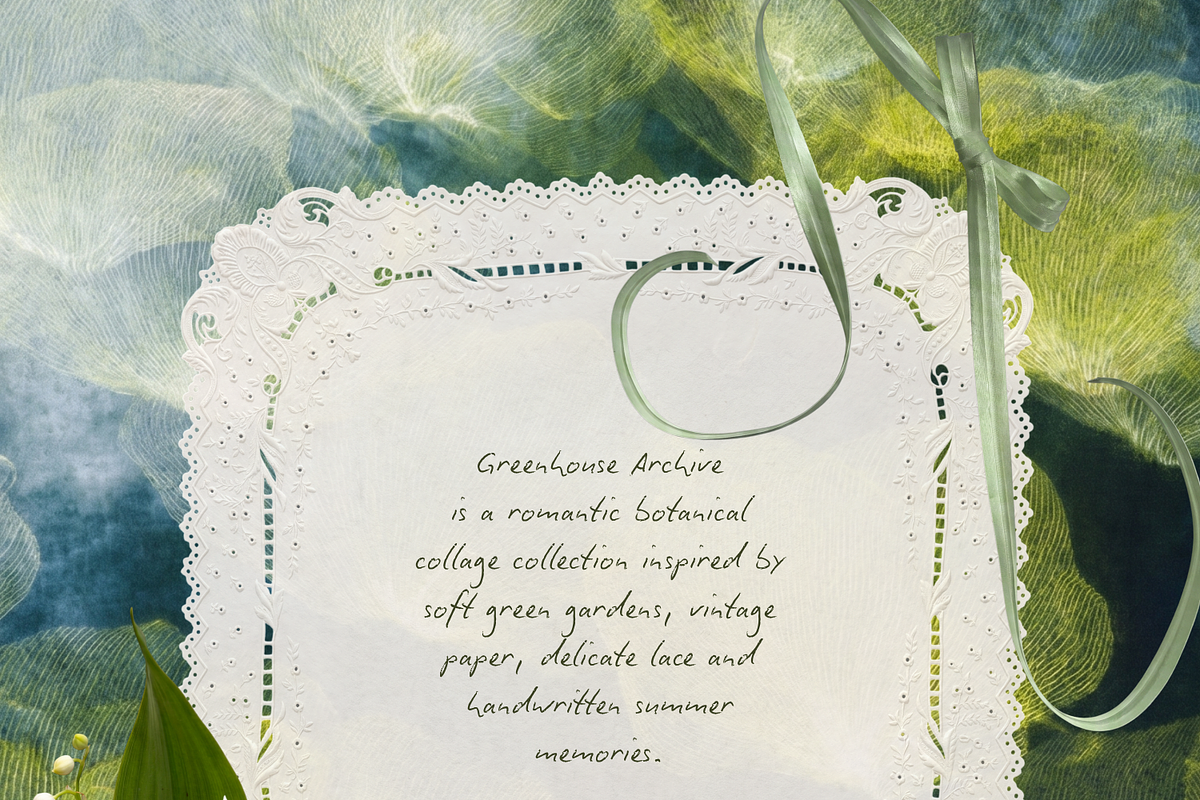 Greenhouse Archive
is a romantic botanical
collage collection inspired by
soft green gardens, vintage
paper, delicate lace and
handwritten summer
memories.